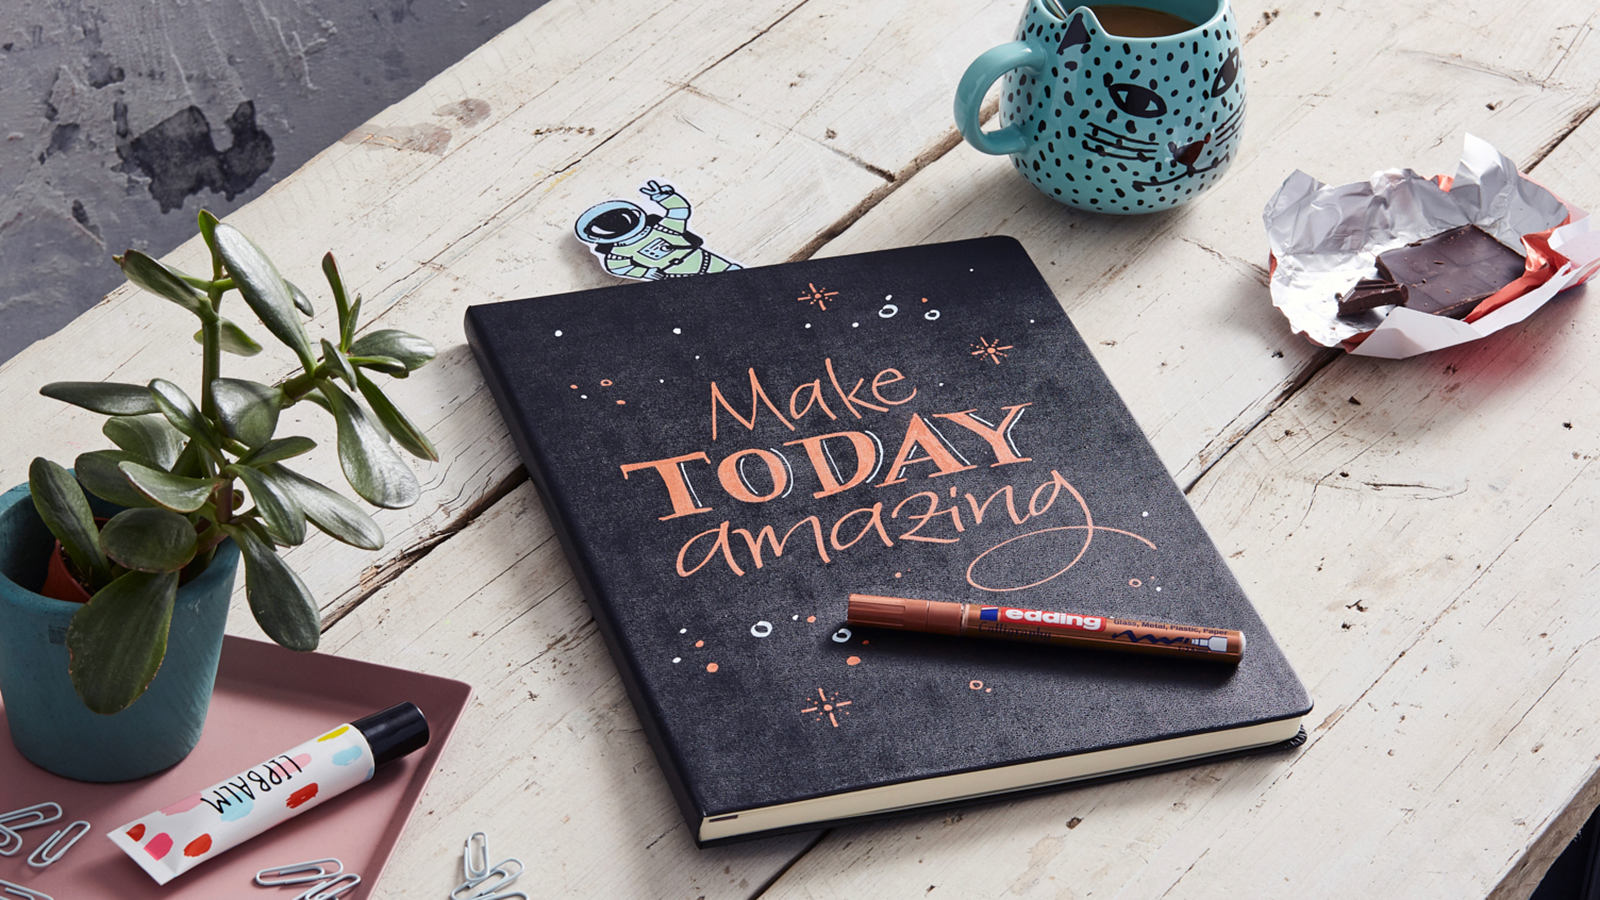 Make
TODAY
amazing
edding
Glass, Metal, Plastic, Paper
LIPBALM